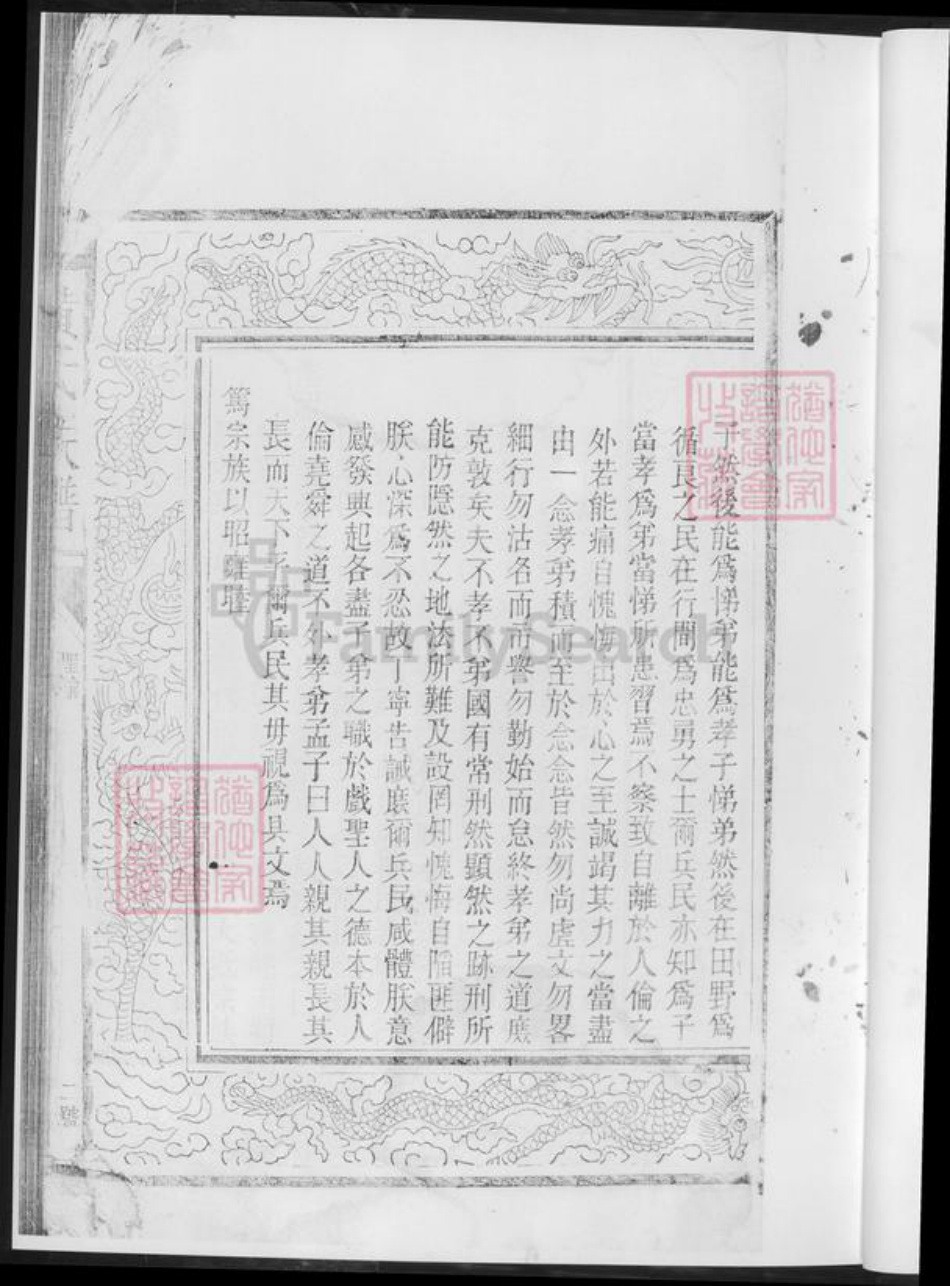 子然後能爲悌弟能爲孝子悌弟然後在田野爲
循良之民在行間爲忠勇之士爾兵民亦知爲子
當孝爲弟當悌所患習焉不察致自離於人倫之
外若能痛自愧悔出於心之至誠竭其力之當盡
由一念孝弟積而至於念念皆然勿尚虛文勿畧
細行勿沽名而市譽勿勤始而怠終孝弟之道庶
克敦矣夫不孝不弟國有常刑然顯然之跡刑所
能防隱然之地法所難及設罔知愧悔自陷匪僻
朕心深爲不忍故丁寧告誡庶爾兵民咸體朕意
感發興起各盡子弟之職於戲聖人之德本於人
倫堯舜之道不外孝弟孟子曰人人親其親長其
長而天下平爾兵民其毋視爲具文焉
篤宗族以昭雍睦
聖諭
二號
FamilySearch